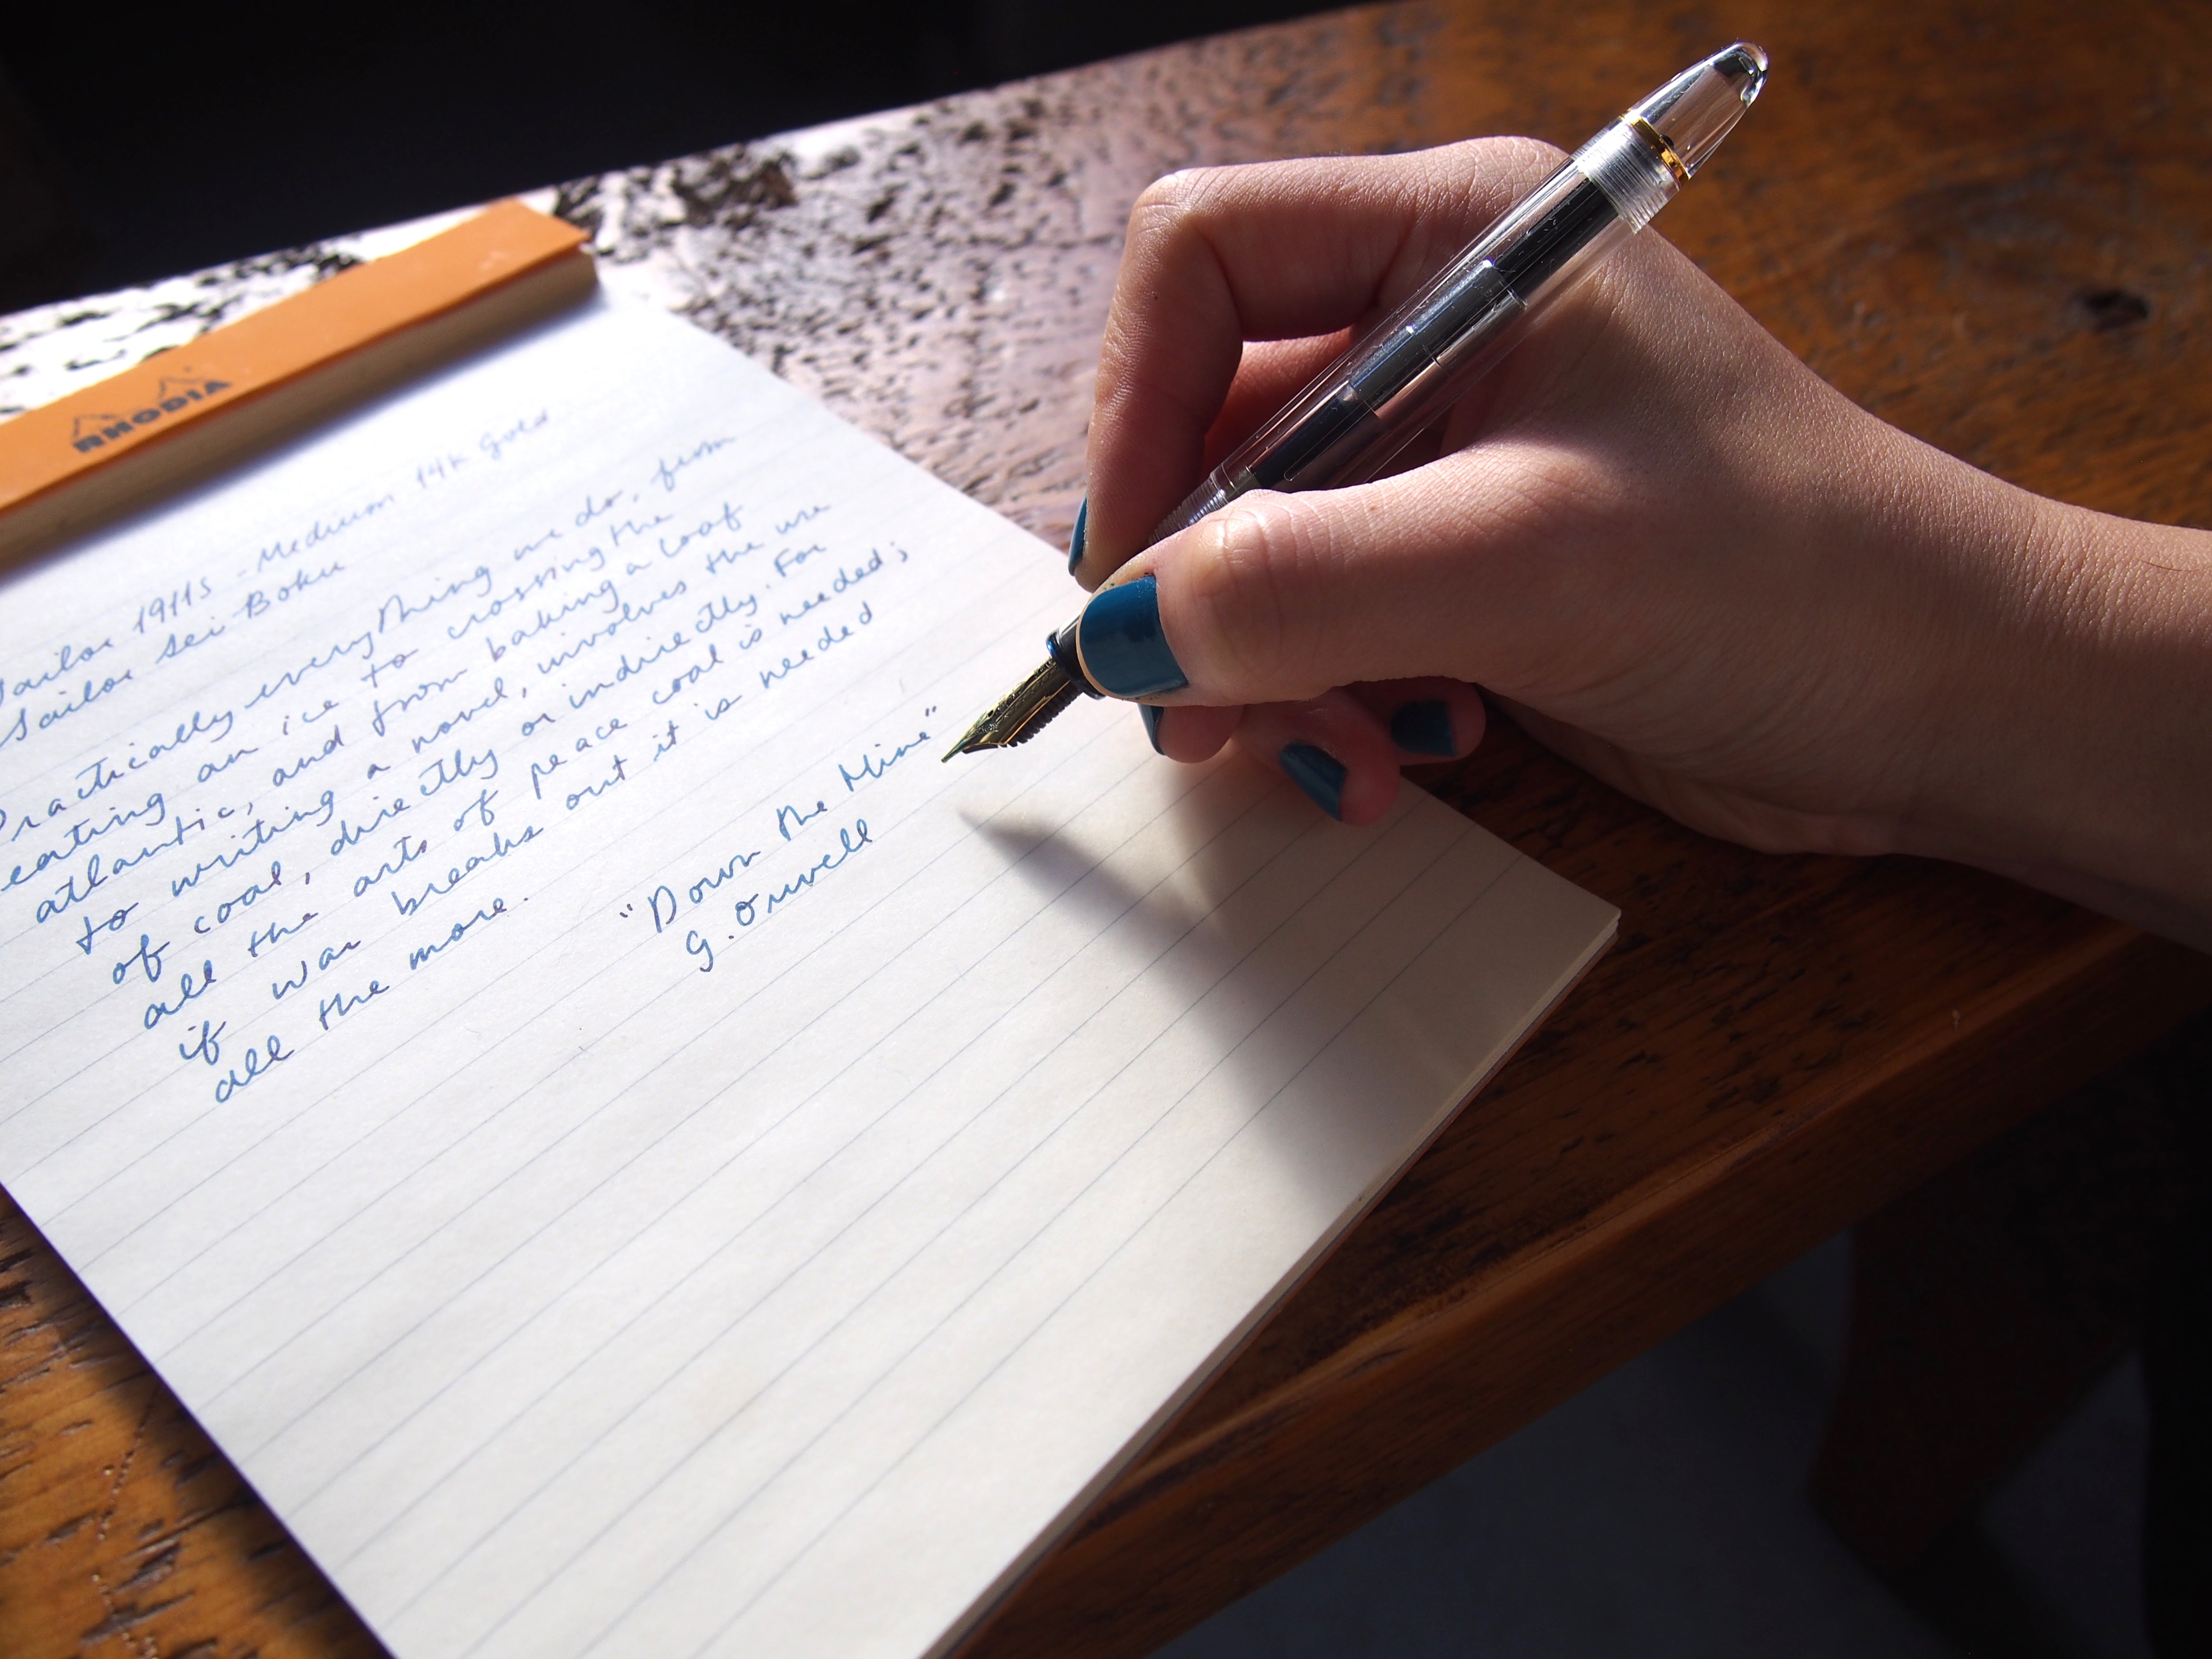 RHODIA
Sailor 1911S - Medium 14K Gold
Sailor Sei Boku
Practically everything we do, from
eating an ice to crossing the
atlantic, and from baking a loaf
to writing a novel, involves the use
of coal, directly or indirectly. For
all the arts of peace coal is needed;
if war breaks out it is needed
all the more.
"Down the Mine"
G. Orwell